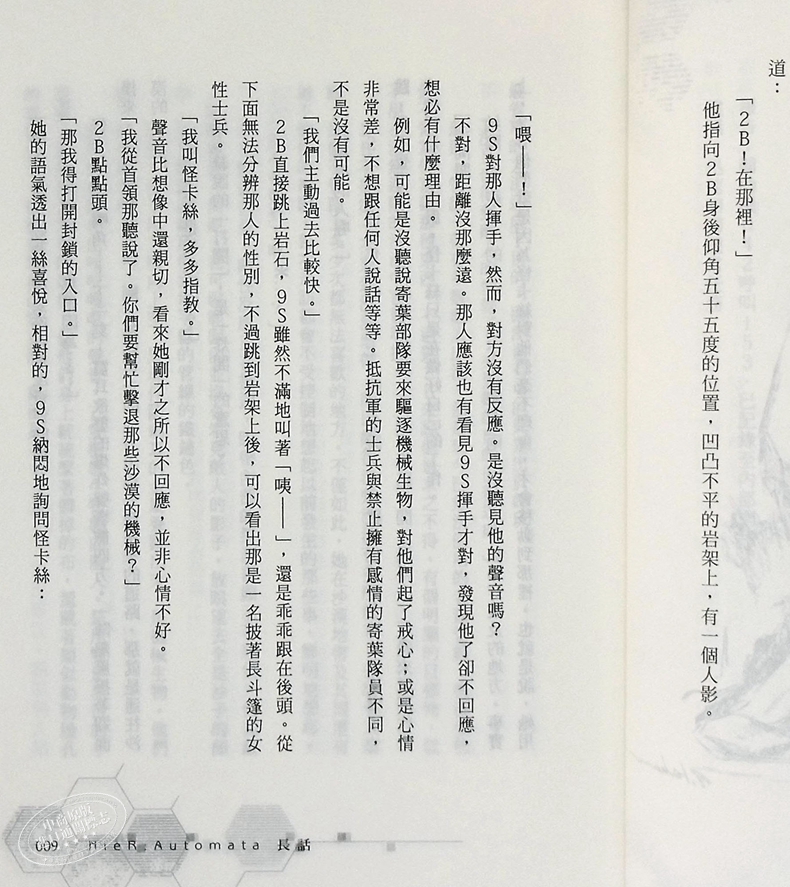 道：
「2B！在那裡！」
他指向2B身後仰角五十五度的位置，凹凸不平的岩架上，有一個人影。
「喂——！」
9S對那人揮手，然而，對方沒有反應。是沒聽見他的聲音嗎？
不對，距離沒那麼遠。那人應該也有看見9S揮手才對，發現他了卻不回應，
想必有什麼理由。
例如，可能是沒聽說寄葉部隊要來驅逐機械生物，對他們起了戒心；或是心情
非常差，不想跟任何人說話等等。抵抗軍的士兵與禁止擁有感情的寄葉隊員不同，
不是沒有可能。
「我們主動過去比較快。」
2B直接跳上岩石，9S雖然不滿地叫著「咦——」，還是乖乖跟在後頭。從
下面無法分辨那人的性別，不過跳到岩架上後，可以看出那是一名披著長斗篷的女
性士兵。
「我叫怪卡絲，多多指教。」
聲音比想像中還親切，看來她剛才之所以不回應，並非心情不好。
「我從首領那聽說了。你們要幫忙擊退那些沙漠的機械？」
2B點點頭。
「那我得打開封鎖的入口。」
她的語氣透出一絲喜悅，相對的，9S納悶地詢問怪卡絲：
009 NieR:Automata 長話
中商原版
進口通關標志